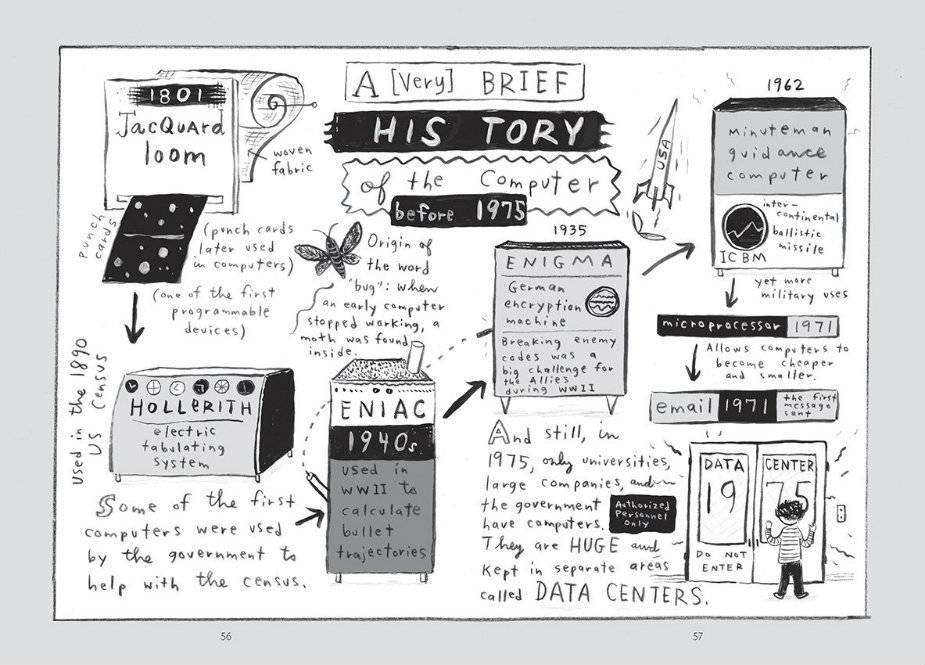 A [Very] BRIEF
HISTORY
of the Computer
before 1975
1801
JacQuard
loom
woven
fabric
punch
cards
(punch cards
later used
in computers)
(one of the first
programmable
devices)
Used in the 1890
US Census
HOLLERITH
electric
tabulating
system
Some of the first
computers were used
by the government to
help with the census.
Origin of
the word
"bug": When
an early computer
stopped working, a
moth was found
inside.
ENIAC
1940s
used in
WWII to
calculate
bullet
trajectories
1935
ENIGMA
German
encryption
machine
Breaking enemy
codes was a
big challenge for
the Allies
during WWII
USA
1962
Minuteman
guidance
computer
inter-
continental
ballistic
missile
ICBM
yet more
military uses
microprocessor 1971
Allows computers to
become cheaper
and smaller.
email 1971 the first
message
sent
And still, in
1975, only universities,
large companies, and
the government
have computers.
Authorized
Personnel
Only
They are HUGE and
kept in separate areas
called DATA CENTERS.
DATA CENTER
19 75
DO NOT
ENTER
56
57